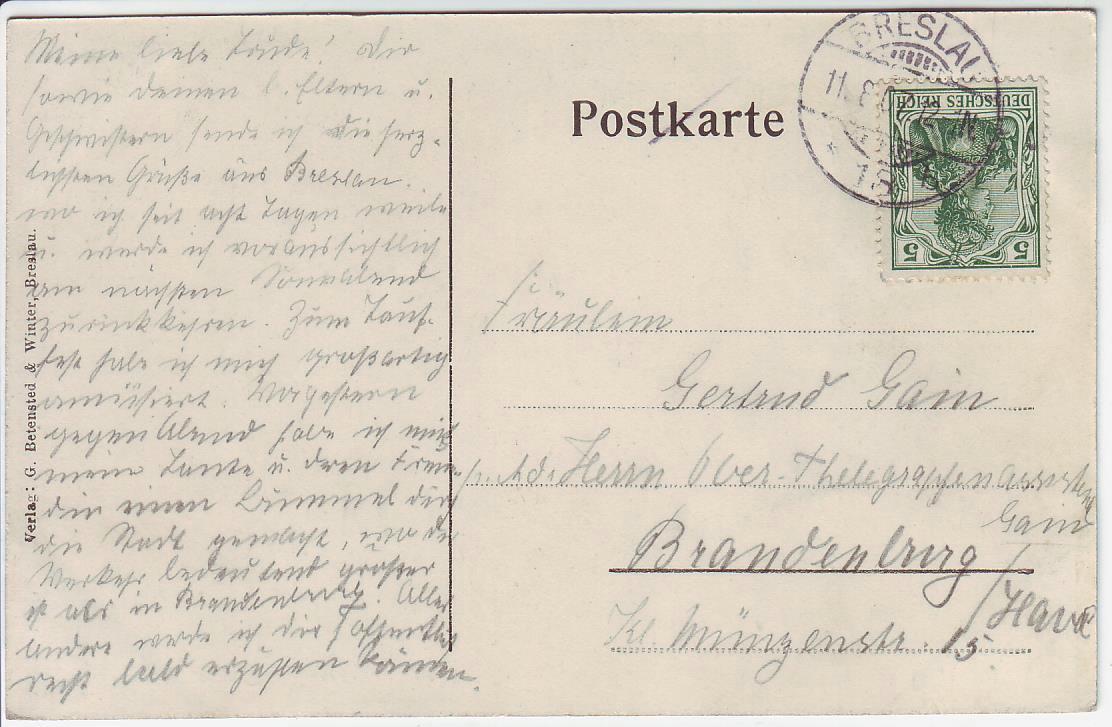 Meine liebe Trude! Dir
sowie deinen l. Eltern u.
Geschwistern sende ich die herz-
lichsten Grüße aus Breslau,
wo ich seit acht Tagen weile
u. werde ich voraussichtlich
am nächsten Sonnabend
zurückkehren. Zum Tauf-
fest habe ich mich großartig
amüsiert. Vorgestern
gegen Abend habe ich mit
meiner Tante u. deren Freun-
din einen Bummel durch
die Stadt gemacht, wo der
Verkehr bedeutend größer
ist als in Brandenburg. Alles
andere werde ich dir hoffentlich
recht bald erzählen können.
Verlag: G. Betensted & Winter, Breslau.
Postkarte
BRESLAU
11. 8.
DEUTSCHES REICH
5 5
Fräulein
Gertrud Gain
p. Adr. Herrn Ober-Thelegraphenassistent
Gain
Brandenburg
/Havel
Kl. Münzenstr. 15.